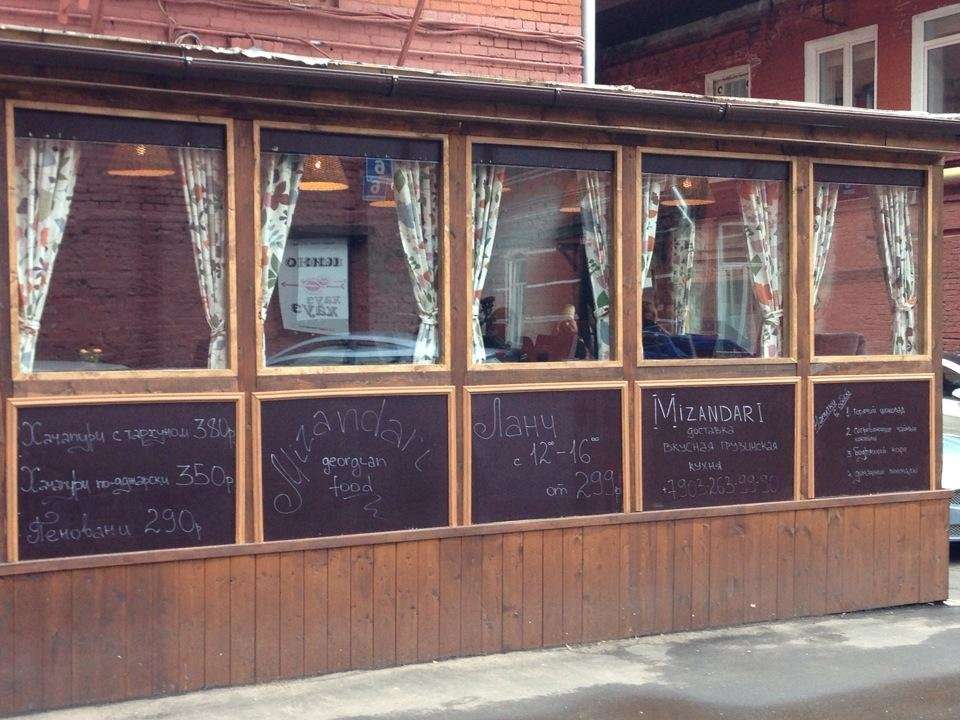 Хачапури с тархуном 380р
Хачапури по-аджарски 350р
Пеновани 290р
Mizandari
georgian
food
Ланч
с 12⁰⁰-16⁰⁰
от 299р
MIZANDARI
доставка
вкусная грузинская
кухня
+7903-263-99-9
1 Горячий шоколад
2
3 кофе
4
кино
хауз
хауз
6
6